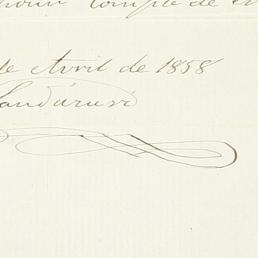 compte de
de Avril de 1858
Landáruri